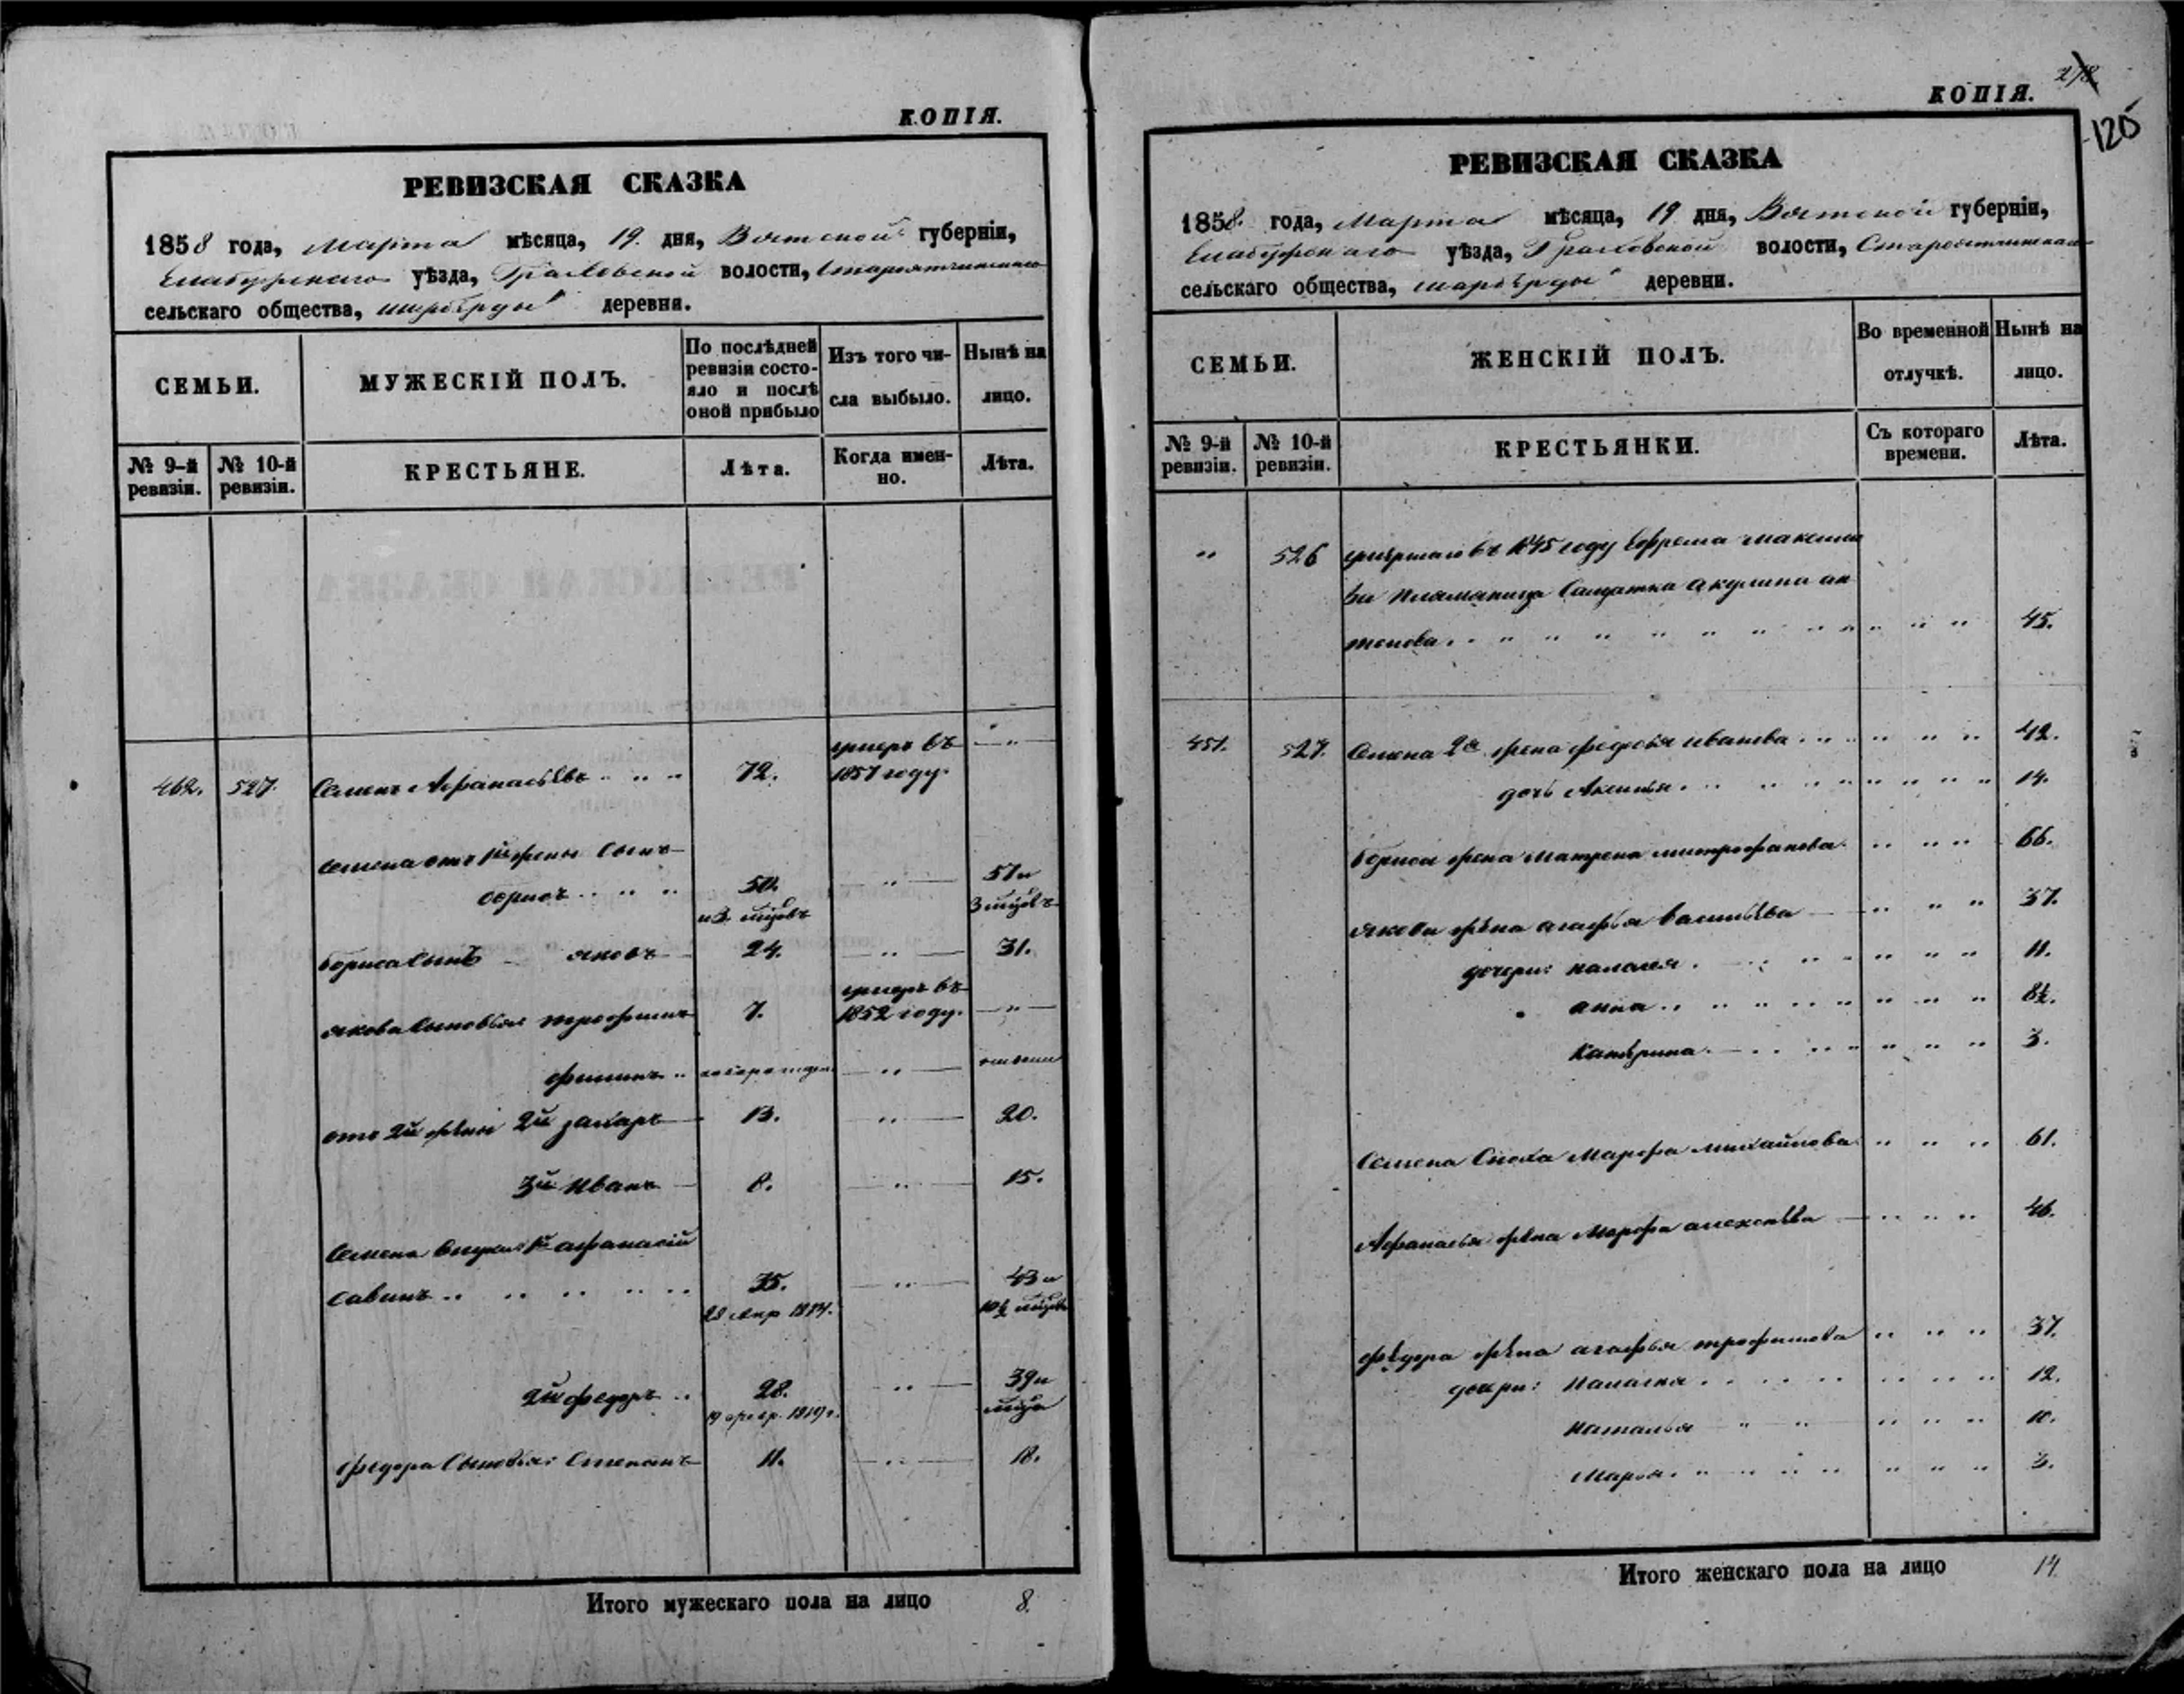 КОПІЯ.
РЕВИЗСКАЯ СКАЗКА
1858 года, Марта мѣсяца, 19. дня, Вятской губерніи,
Елабужскаго уѣзда, Граховской волости,
сельскаго общества, деревни.
СЕМЬИ.
МУЖЕСКІЙ ПОЛЪ.
По послѣдней
ревизіи состо-
яло и послѣ
оной прибыло
Изъ того чи-
сла выбыло.
Нынѣ на
лицо.
№ 9-й
ревизіи.
№ 10-й
ревизіи.
КРЕСТЬЯНЕ.
Лѣта.
Когда имен-
но.
Лѣта.
умеръ въ
462. 527. Семенъ Афанасьевъ 72. 1857 году.
Семена отъ 1й жены сынъ
борисъ 50. 57 и
и 3. мцовъ 3 мцовъ
бориса сынъ яковъ 24. 31.
умеръ въ
якова сыновья: трофимъ 7. 1852 году.
отъ 2й жены 2й захаръ 13. 20.
3й Иванъ 8. 15.
Семена внуки: 1й афанасій
савинъ 35. 43 и
10½ мцовъ
2й федоръ 28. 39 и
мца
федора сыновья: Степанъ 11. 18.
Итого мужескаго пола на лицо 8.
278
КОПІЯ.
120
РЕВИЗСКАЯ СКАЗКА
1858. года, Марта мѣсяца, 19 дня, Вятской губерніи,
Елабужскаго уѣзда, Граховской волости,
сельскаго общества, деревни.
СЕМЬИ.
ЖЕНСКІЙ ПОЛЪ.
Во временной
отлучкѣ.
Нынѣ на
лицо.
№ 9-й
ревизіи.
№ 10-й
ревизіи.
КРЕСТЬЯНКИ.
Съ котораго
времени.
Лѣта.
" 526 умершаго въ 1845 году Ефрема максимо
ва Солдатка акулина ан
тонова 45.
527. Семена 2я жена федосья иванова 42.
дочь Аксинья 14.
бориса жена матрена митрофанова 66.
якова жена агафья васильева 37.
дочери: палагея 11.
анна 8½.
катерина 3.
Семена сноха Марфа михайлова 61.
Афанасья жена Марфа алексѣева 46.
федора жена агафья трофимова 37.
дочери: палагея 12.
наталья 10.
Марья 3.
Итого женскаго пола на лицо 14